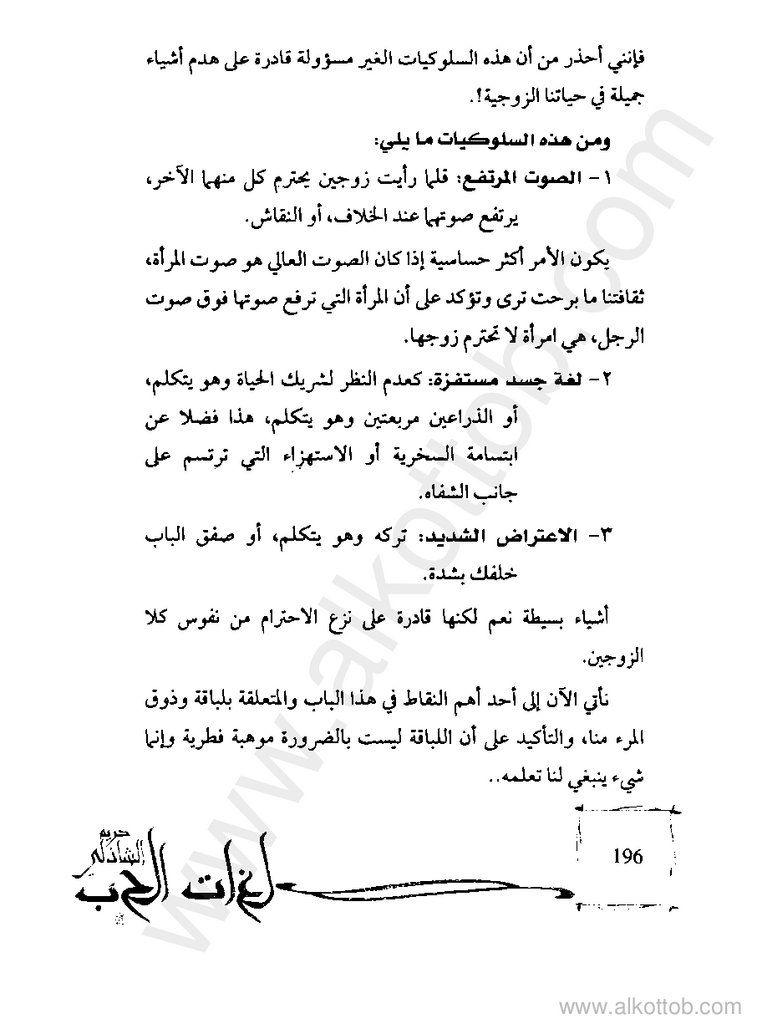 فإنني أحذر من أن هذه السلوكيات الغير مسؤولة قادرة على هدم أشياء
جميلة في حياتنا الزوجية؟.
ومن هذه السلوكيات ما يلي:
١- الصوت المرتفع: قلما رأيت زوجين يحترم كل منهما الآخر،
يرتفع صوتهما عند الخلاف، أو النقاش.
يكون الأمر أكثر حساسية إذا كان الصوت العالي هو صوت المرأة،
ثقافتنا ما برحت ترى وتؤكد على أن المرأة التي ترفع صوتها فوق صوت
الرجل، هي امرأة لا تحترم زوجها.
٢- لغة جسد مستفزة: كعدم النظر لشريك الحياة وهو يتكلم،
أو الذراعين مربعتين وهو يتكلم، هذا فضلا عن
ابتسامة السخرية أو الاستهزاء التي ترتسم على
جانب الشفاه.
٣- الاعتراض الشديد: تركه وهو يتكلم، أو صفق الباب
خلفك بشدة.
أشياء بسيطة نعم لكنها قادرة على نزع الاحترام من نفوس كلا
الزوجين.
نأتي الآن إلى أحد أهم النقاط في هذا الباب والمتعلقة بلباقة وذوق
المرء منا، والتأكيد على أن اللباقة ليست بالضرورة موهبة فطرية وإنما
شيء ينبغي لنا تعلمه..
196
كريم
الشاذلي
لغات الحب
www.alkottob.com
www.alkottob.com